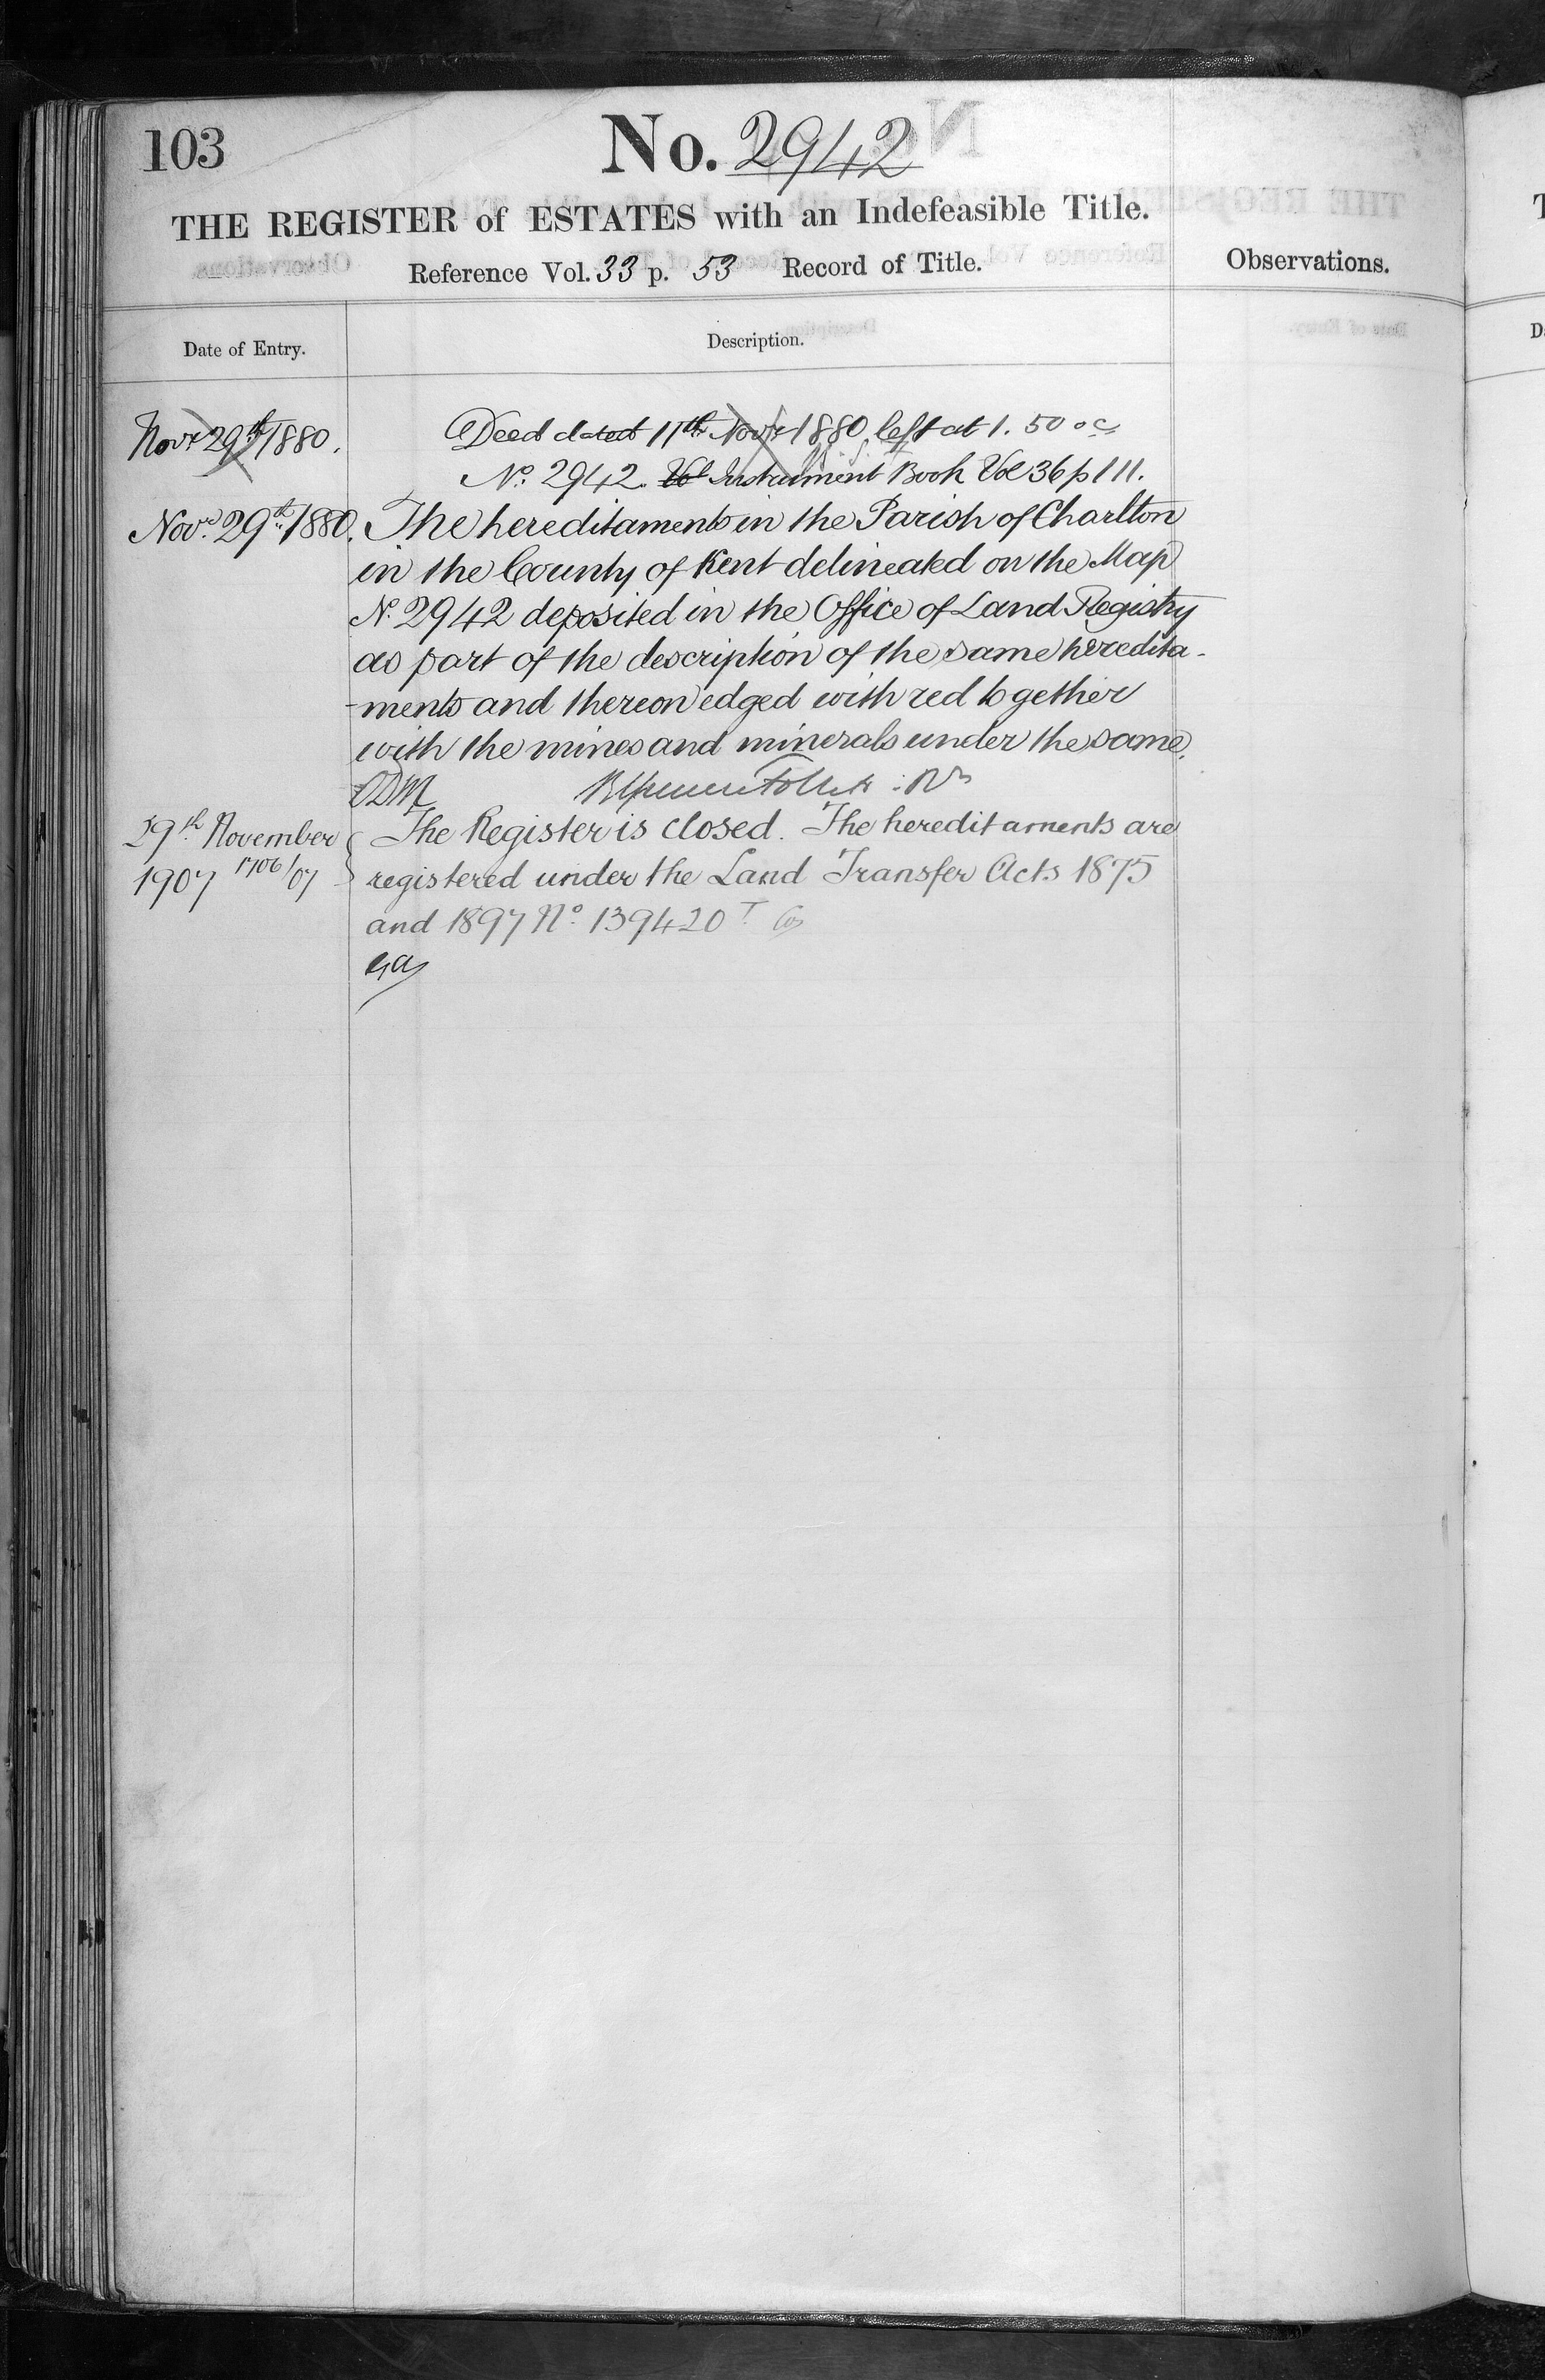 103
No. 2942
THE REGISTER of ESTATES with an Indefeasible Title.
Reference Vol. 33 p. 53 Record of Title.
Observations.
Date of Entry.
Description.
Novr 29th 1880. Deed dated 11th Novr 1880 left at 1.50 oc
No. 2942. Vol Instrument Book Vol 36 p 111.
Novr. 29th 1880. The hereditaments in the Parish of Charlton
in the County of Kent delineated on the Map
No. 2942 deposited in the Office of Land Registry
as part of the description of the same heredita-
-ments and thereon edged with red together
with the mines and minerals under the same.
29th November The Register is closed. The hereditaments are
1907 1706/07 registered under the Land Transfer Acts 1875
and 1897 No. 139420